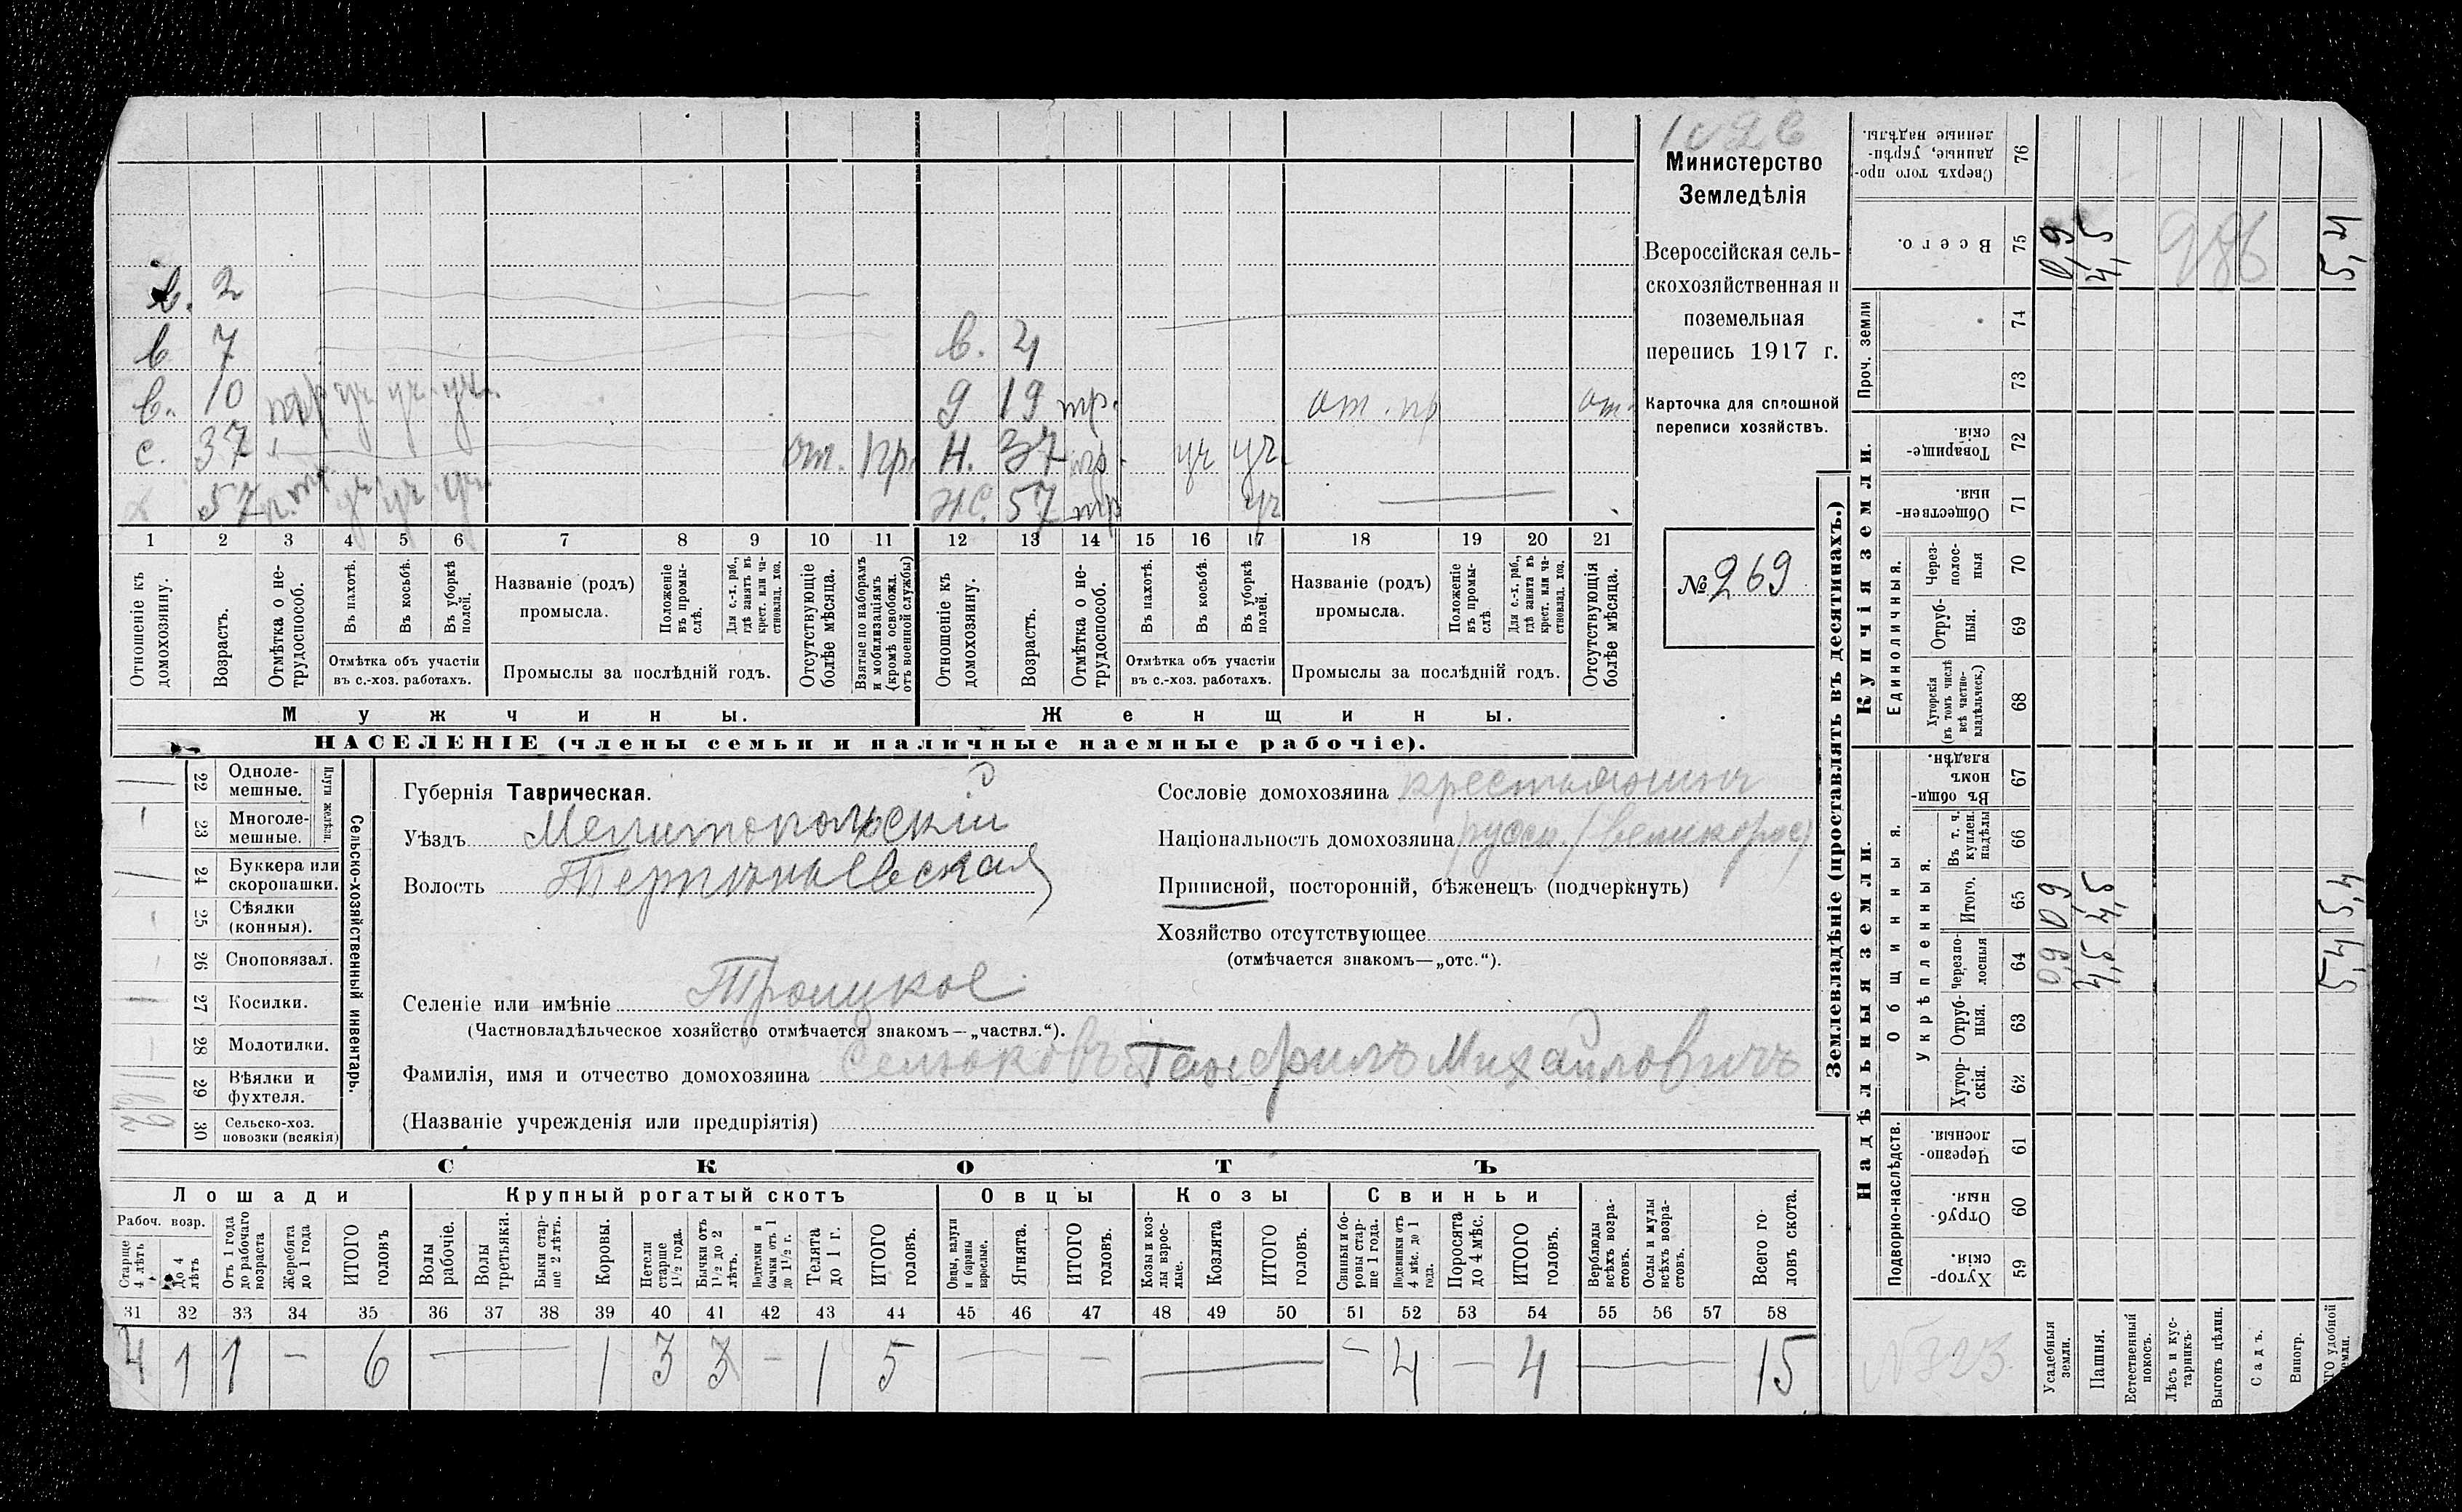 Министерство
Земледѣлія
Всероссійская сель-
скохозяйственная и
поземельная
перепись 1917 г.
Карточка для сплошной
переписи хозяйствъ.
№ 269
в. 2
в 7
в. 4
в. 10
д 19 тр. от. пр от.
с. 37 от. пр. н. 37 уч уч.
57 уч уч уч ж. 57 тр уч
1 2 3 4 5 6 7 8 9 10 11 12 13 14 15 16 17 18 19 20 21
Отношеніе къ домохозяину.
Возрастъ.
Отмѣтка о не-трудоспособ.
Въ пахотѣ.
Въ косьбѣ.
Въ уборкѣ полей.
Отмѣтка объ участіи въ с.-хоз. работахъ.
Названіе (родъ) промысла.
Положеніе въ промы-слѣ.
Для с.-х. раб., гдѣ занятъ въ крест. или ча-стновлад. хоз.
Промыслы за послѣдній годъ.
Отсутствующіе болѣе мѣсяца.
Взятые по наборамъ и мобилизаціямъ (кромѣ освобожд. отъ военной службы)
Отношеніе къ домохозяину.
Возрастъ.
Отмѣтка о не-трудоспособ.
Въ пахотѣ.
Въ косьбѣ.
Въ уборкѣ полей.
Отмѣтка объ участіи въ с.-хоз. работахъ.
Названіе (родъ) промысла.
Положеніе въ промы-слѣ
Для с.-х. раб., гдѣ занята въ крест. или ча-стновлад. хоз.
Промыслы за послѣдній годъ.
Отсутствующія болѣе мѣсяца.
Мужчины. Женщины.
НАСЕЛЕНІЕ (члены семьи и наличные наемные рабочіе).
Сельско-хозяйственный инвентарь.
Плуги желѣзн.
22 Одноле-мешные.
23 Многоле-мешные.
24 Буккера или скоропашки.
25 Сѣялки (конныя).
26 Сноповязал.
27 Косилки.
28 Молотилки.
29 Вѣялки и фухтеля.
30 Сельско-хоз. повозки (всякія)
Губернія Таврическая.
Уѣздъ Мелитопольскій
Волость
Селеніе или имѣніе Троицкое
(Частновладѣльческое хозяйство отмѣчается знакомъ—„частвл.“).
Фамилія, имя и отчество домохозяина Михайловичъ
(Названіе учрежденія или предпріятія)
Сословіе домохозяина крестьянинъ
Національность домохозяина русск. (великорос)
Приписной, посторонній, бѣженецъ (подчеркнуть)
Хозяйство отсутствующее
(отмѣчается знакомъ—„отс.“).
СКОТЪ
Лошади Крупный рогатый скотъ Овцы Козы Свиньи
Рабоч. возр.
Старше 4 лѣтъ
До 4 лѣтъ
Отъ 1 года до рабочаго возраста
Жеребята до 1 года
ИТОГО головъ
Волы рабочіе.
Волы третьяки.
Быки стар-ше 2 лѣтъ.
Коровы.
Нетели старше 1½ года.
Бычки отъ 1½ до 2 лѣтъ.
Подтелки и бычки отъ 1 до 1½ г.
Телята до 1 г.
ИТОГО головъ.
Овцы, валухи и бараны взрослые.
Ягнята.
ИТОГО головъ.
Козы и коз-лы взрос-лые.
Козлята
ИТОГО головъ.
Свиньи и бо-ровы стар-ше 1 года.
Подсвинки отъ 4 мѣс. до 1 года.
Поросята до 4 мѣс.
ИТОГО головъ.
Верблюды всѣхъ возра-стовъ.
Ослы и мулы всѣхъ возра-стовъ.
Всего го-ловъ скота.
31 32 33 34 35 36 37 38 39 40 41 42 43 44 45 46 47 48 49 50 51 52 53 54 55 56 57 58
4 1 1 — 6 — 1 3 3 — 1 5 — — — — 4 — 4 — 15
Землевладѣніе (проставлять въ десятинахъ.)
Надѣльныя земли. Купчія земли. Проч. земли
Подворно-наслѣдств. Общинныя. Единоличныя.
укрѣпленныя.
59 Хутор-скія.
60 Отруб-ныя.
61 Черезпо-лосныя.
62 Хутор-скія.
63 Отруб-ныя.
64 Черезпо-лосныя
65 Итого.
66 Въ т. ч. куплен. надѣлы
67 Въ общи-номъ владѣн.
68 Хуторскія (въ томъ числѣ всѣ частно-владѣльческ.)
69 Отруб-ныя.
70 Через-полос-ныя
71 Обществен-ныя
72 Товарище-скія.
73
74
75 Всего.
76 Сверхъ того про-данные, укрѣп-ленные надѣлы.
Усадебныя земли. 0,9 0,9 0,9
Пашня. 4,5 4,5 4,5
Естественный покосъ.
Лѣсъ и кус-тарникъ.
Выгонъ цѣлин.
Садъ.
Виногр.
удобной земли. 5,4 5,4 5,4